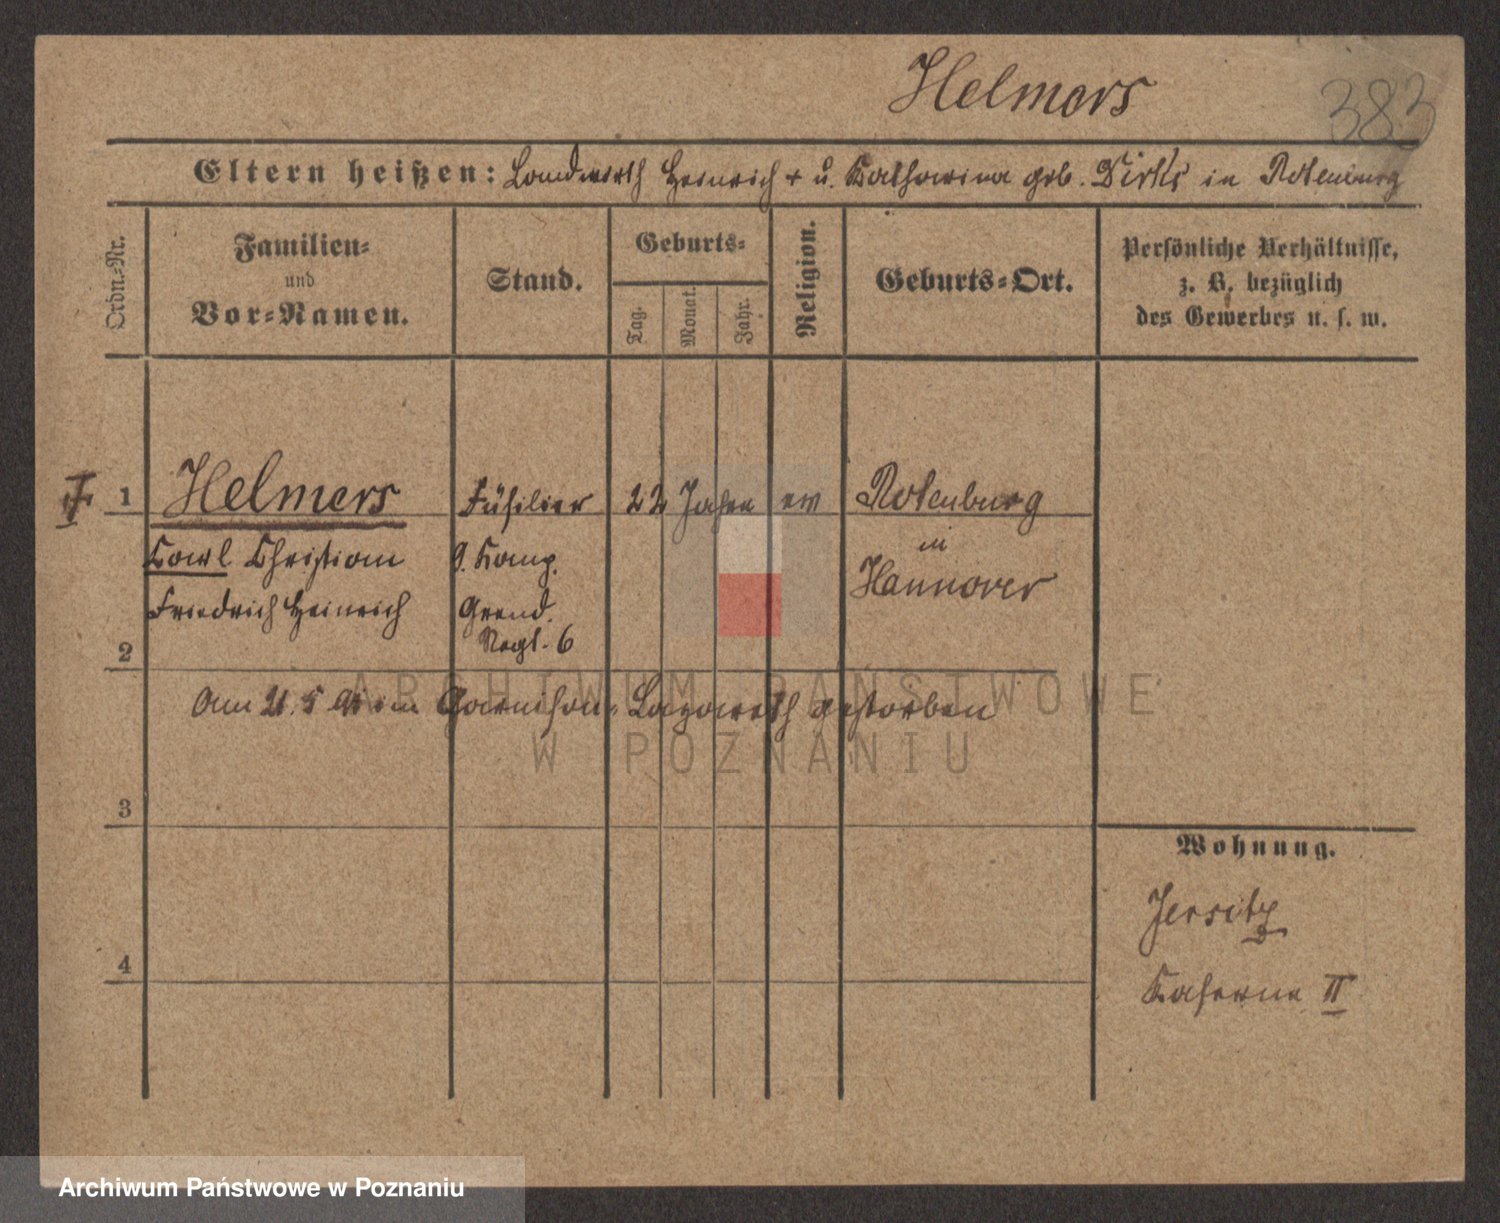 Helmers
383
Eltern heißen: Landwirth Heinrich + u. Katharina geb. Dirks in Rotenburg
Ordn.-Nr.
Familien-
und
Vor-Namen.
Stand.
Geburts-
Tag.
Monat.
Jahr.
Religion.
Geburts-Ort.
Persönliche Verhältnisse,
z. B. bezüglich
des Gewerbes u. s. w.
1 Helmers Füsilier 22 Jahre ev Rotenburg
Carl Christian 9. Komp. in
Friedrich Heinrich Grend. Hannover
Regt. 6
2
Am 21. 5 im Garnison-Lazareth gestorben
ARCHIWUM PAŃSTWOWE
W POZNANIU
3
Wohnung.
Jersitz
4
Kaserne II
Archiwum Państwowe w Poznaniu